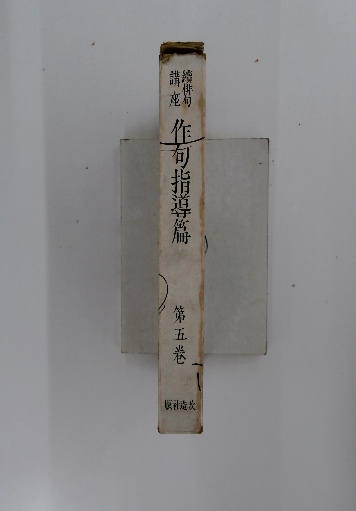 續俳句
講座
作句指導篇
第五卷
改造社版